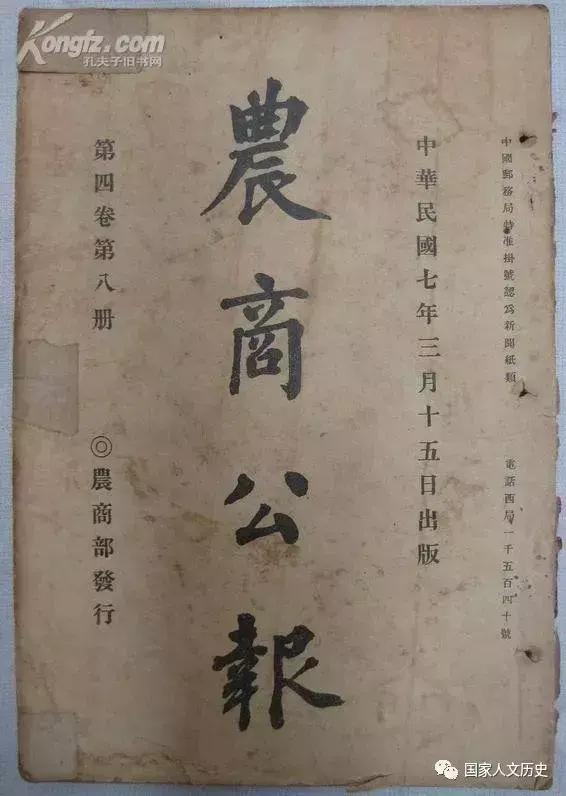 Kongfz.com
孔夫子旧书网
中國郵務局特准掛號認爲新聞紙類
電話西局一千五百四十號
中華民國七年三月十五日出版
農商公報
第四卷第八册
◎農商部發行
国家人文历史